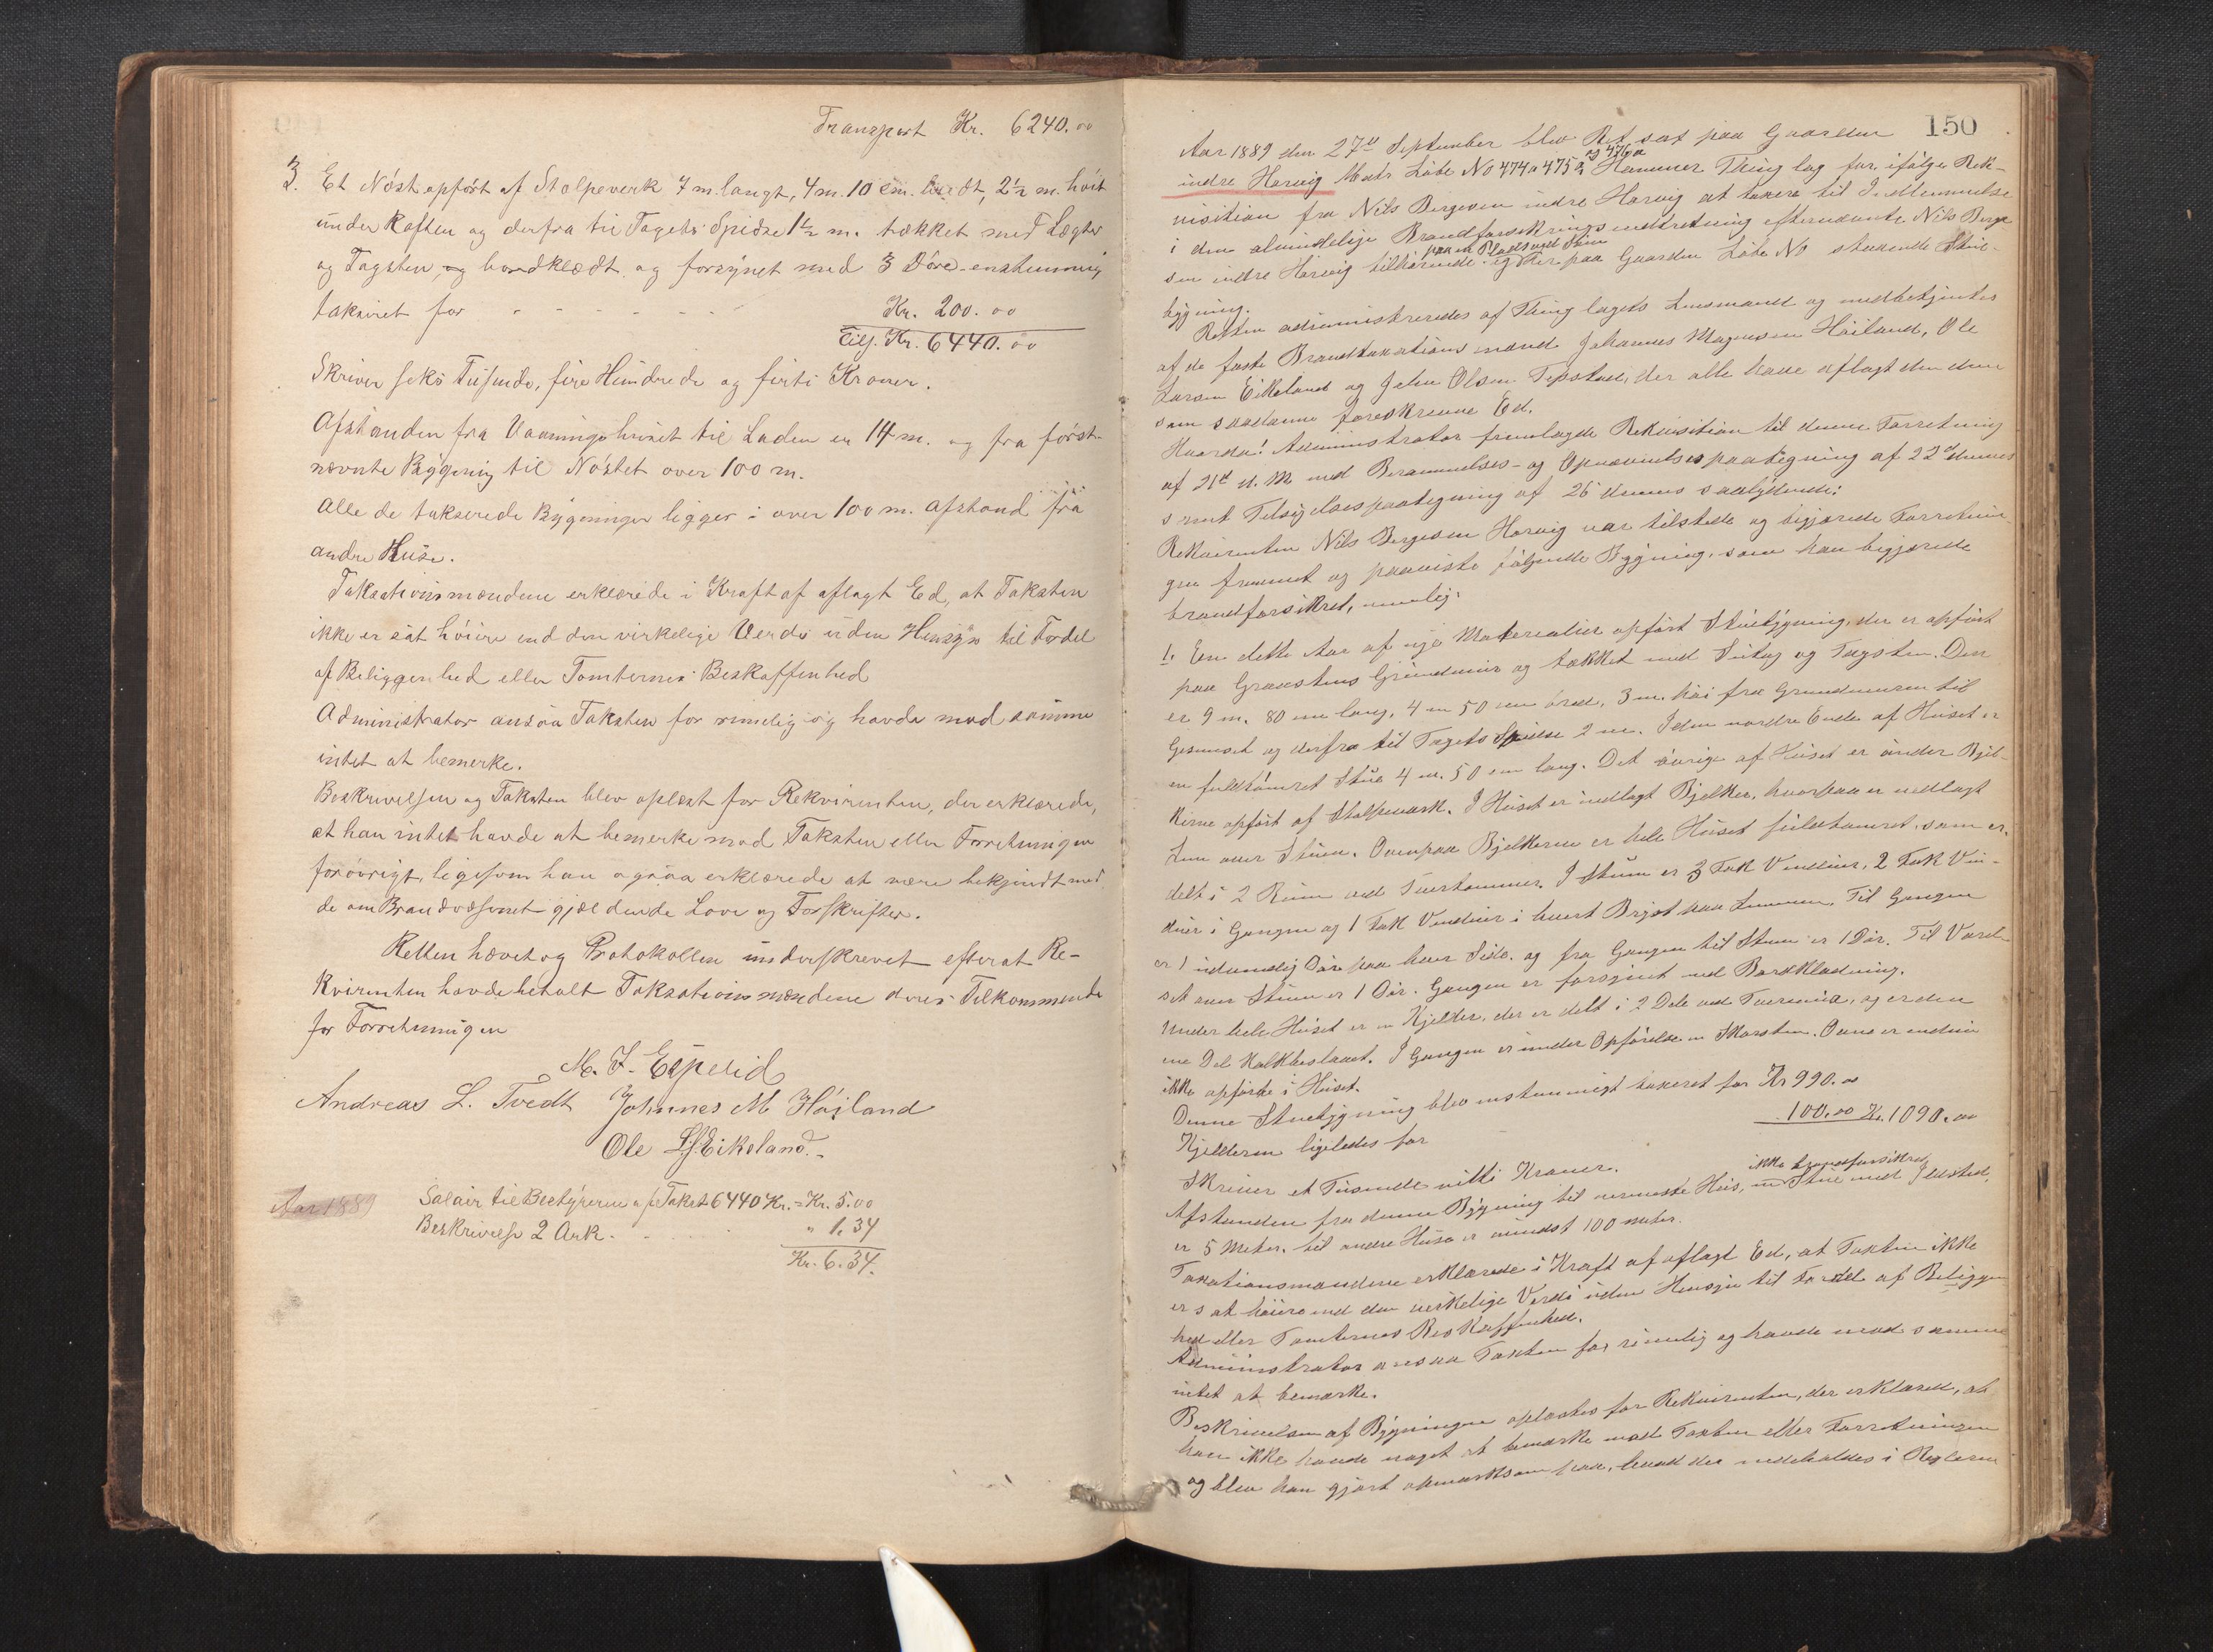 Transport Kr. 6240.00
3. Et Nöst opfört af Stolpeverk 7 m. langt, 4 m. 10 cm. bredt, 2½ m. höit
under Raften og derfra til Tagets Spidse 1½ m. tækket med Lægter
og Tagsten, og bordklædt og forsynet med 3 Döre - enstemmig
taksiret for - - - - - - Kr. 200.00
Tils. Kr. 6440.00
Skriver seks Tusende, fire Hundrede og firti Kroner.
Afstanden fra Vaaningshuset til Laden er 14 m. og fra först-
nævnte Bygning til Nöstet over 100 m.
Alle de takserede Bygninger ligger i over 100 m. Afstand fra
andre Huse.
Taksationsmændene erklærede i Kraft af aflagt Ed, at Taksten
ikke er sat höiere end den virkelige Verdi uden Hensyn til Fordel
af Beliggenhed eller Tomternes Beskaffenhed
Administrator ansaa Taksten for rimelig og havde mod samme
intet at bemerke.
Beskrivelsen og Taksten blev oplæst for Rekvirenten, der erklærede,
at han intet havde at bemerke mod Taksten eller Forretningen
forövrigt, ligesom han ogsaa erklærede at være bekjendt med
de om Brandvæsenet gjældende Love og Forskrifter.
Retten hævet og Protokollen underskrevet efterat Re-
kvirenten havde betalt Taksationsmændene deres Tilkommende
for Forretningen
M. J. Espelid
Andreas L. Tvedt Johannes M Höjland
Ole L. Eikeland.
Aar 1889
Salair til Bestyreren af Takst 6440 Kr. = Kr. 5.00
Beskrivelse 2 Ark. - - " 1.34
Kr. 6.34.
150
Aar 1889 den 27de September blev Ret sat paa Gaarden
og 476a
indre Horvig Matr Löbe No 474a 475a Hammer Thinglag for ifölge Rek-
visition fra Nils Bergesen indre Horvig at taxere til Indlemmelse
i den almindelige Brandforsikringsindretning efternævnte Nils Berge
paa en Plads ved Söen
sen indre Horvig tilhörende og her paa Gaarden Löbe No staaende Stue-
bygning.
Retten administreredes af Thinglagets Lensmand og medbetjentes
af de faste Brandtaxationsmænd Johannes Magnesen Höiland, Ole
Larsen Eikeland og John Olsen, der alle have aflagt den dem
som saadanne foreskrevne Ed.
Hvorda! Administrator fremlagde Rekvisition til denne Forretning
af 21de d. M med Berammelses- og Opnævnelsespaategning af 22de dennes
samt Tilsigelsespaategning af 26 dennes saalydende:
Rekvirenten Nils Bergesen Horvig var tilstede og begjærede Forretnin
gen fremmet og paaviste fölgende Bygning, som han begjærede
brandforsikret, nemlig:
1. En dette Aar af nye Materialier opfört Stuebygning, der er opfört
paa Graastens Grundmur og tækket med Sutag og Tagsten. Den
er 9 m. 80 cm lang, 4 m 50 cm bred, 3 m. höi fra Grundmuren til
Gesimset og derfra til Tagets Spidse 2 m. I den nordre Ende af Huset er
en fuldtömret Stue 4 m. 50 cm lang. Det övrige af Huset er under Bjel-
kerne opfört af Stolpeverk. I Huset er indlagt Bjelker, hvorpaa er nedlagt
Lem over Stuen. Ovenpaa Bjelkerne er hele Huset fuldtömret, som er
delt i 2 Rum ved Tvertömmer. I Stuen er 3 Fak Vinduer, 2 Fak Vin-
duer i Gangen og 1 Fak Vinduer i hvert Bryst paa Lemmen. Til Gangen
er 1 udvendig Dör paa hver Side, og fra Gangen til Stuen er 1 Dör. Til Værel-
set over Stuen er 1 Dör. Gangen er forsynet med Bordklædning.
Under hele Huset er en Kjelder, der er delt i 2 Dele ved Tvermur, og er den
ene Del Kalkbeslaaet. I Gangen er under Opförelse en Skorsten. Ovne er endnu
ikke opförte i Huset.
Denne Stuebygning blev enstemmigt taxeret for Kr 990.00
Kjelderen ligeledes for - 100.00 Kr. 1090.00
Skriver et Tusende nitti Kroner.
ikke brandforsikret
Afstanden fra denne Bygning til nærmeste Hus, en Stue med Ildsted,
er 5 Meter. til andre Huse er mindst 100 meter.
Taxationsmændene erklærede i Kraft af aflagt Ed, at Taxten ikke
er sat höiere end den virkelige Verdi uden Hensyn til Fordel af Beliggen
hed eller Tomternes Beskaffenhed.
Administrator ansaa Taxten for rimelig og havde mod samme
intet at bemærke.
Beskrivelsen af Bygningen oplæstes for Rekvirenten, der erklæred, at
han ikke havde noget at bemærke mod Taxten eller Forretningen
og blev han gjort opmærksom paa, hvad der indeholdes i Reglerne